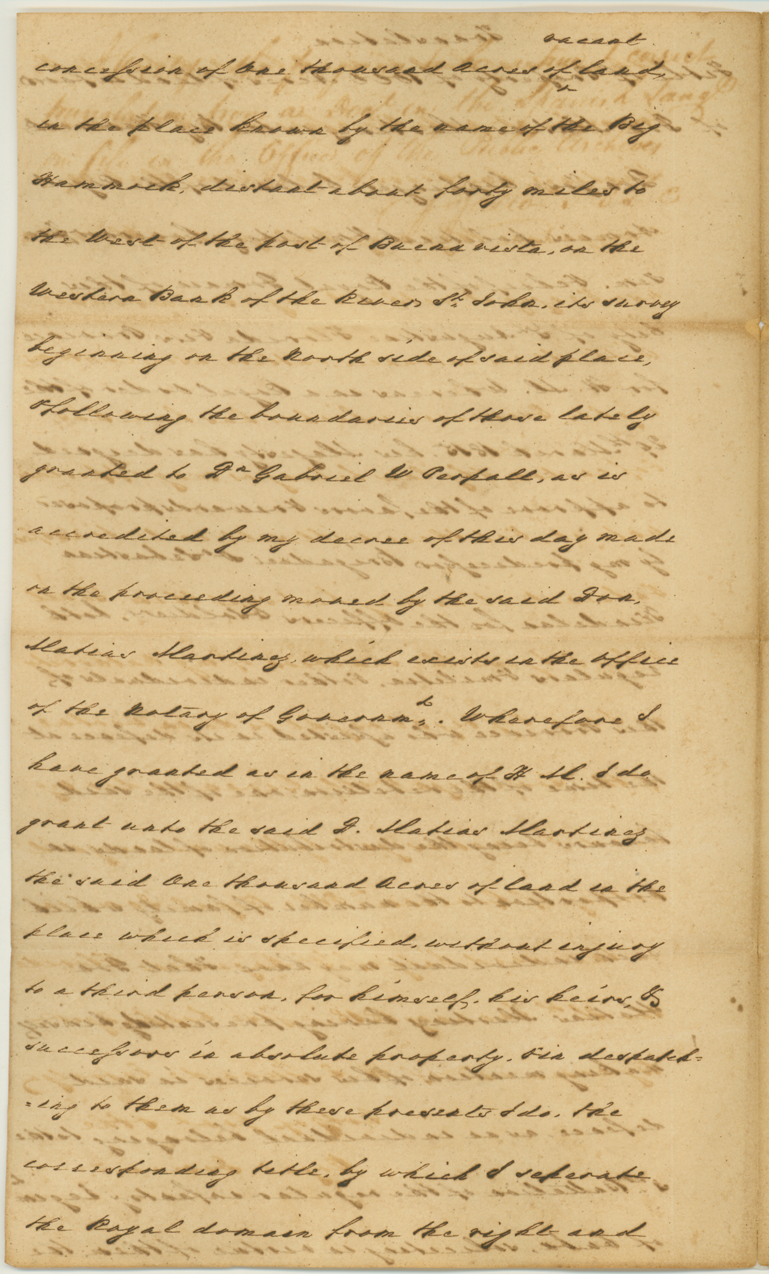 vacant
concession of One thousand Acres of land,
^
in the place known by the name of the Big
Hammock, distant about forty miles to
the West of the post of Buenavista, on the
Western Bank of the River St. John, its survey
beginning on the North side of said place,
& following the boundaries of those lately
granted to Dn Gabriel W Perpall, as is
accredited by my decree of this day made
on the proceeding moved by the said Don,
Matias Martinez, which exists in the Office
of the Notary of Governmt. Wherefore I
have granted as in the name of H M. I do
grant unto the said D. Matias Martinez
the said One thousand Acres of land in the
place which is specified, without injury
to a third person, for himself, his heirs, &
successors in absolute property, & in despatch=
=ing to them as by these presents I do, the
corresponding title, by which I seperate
the Royal domain from the right and